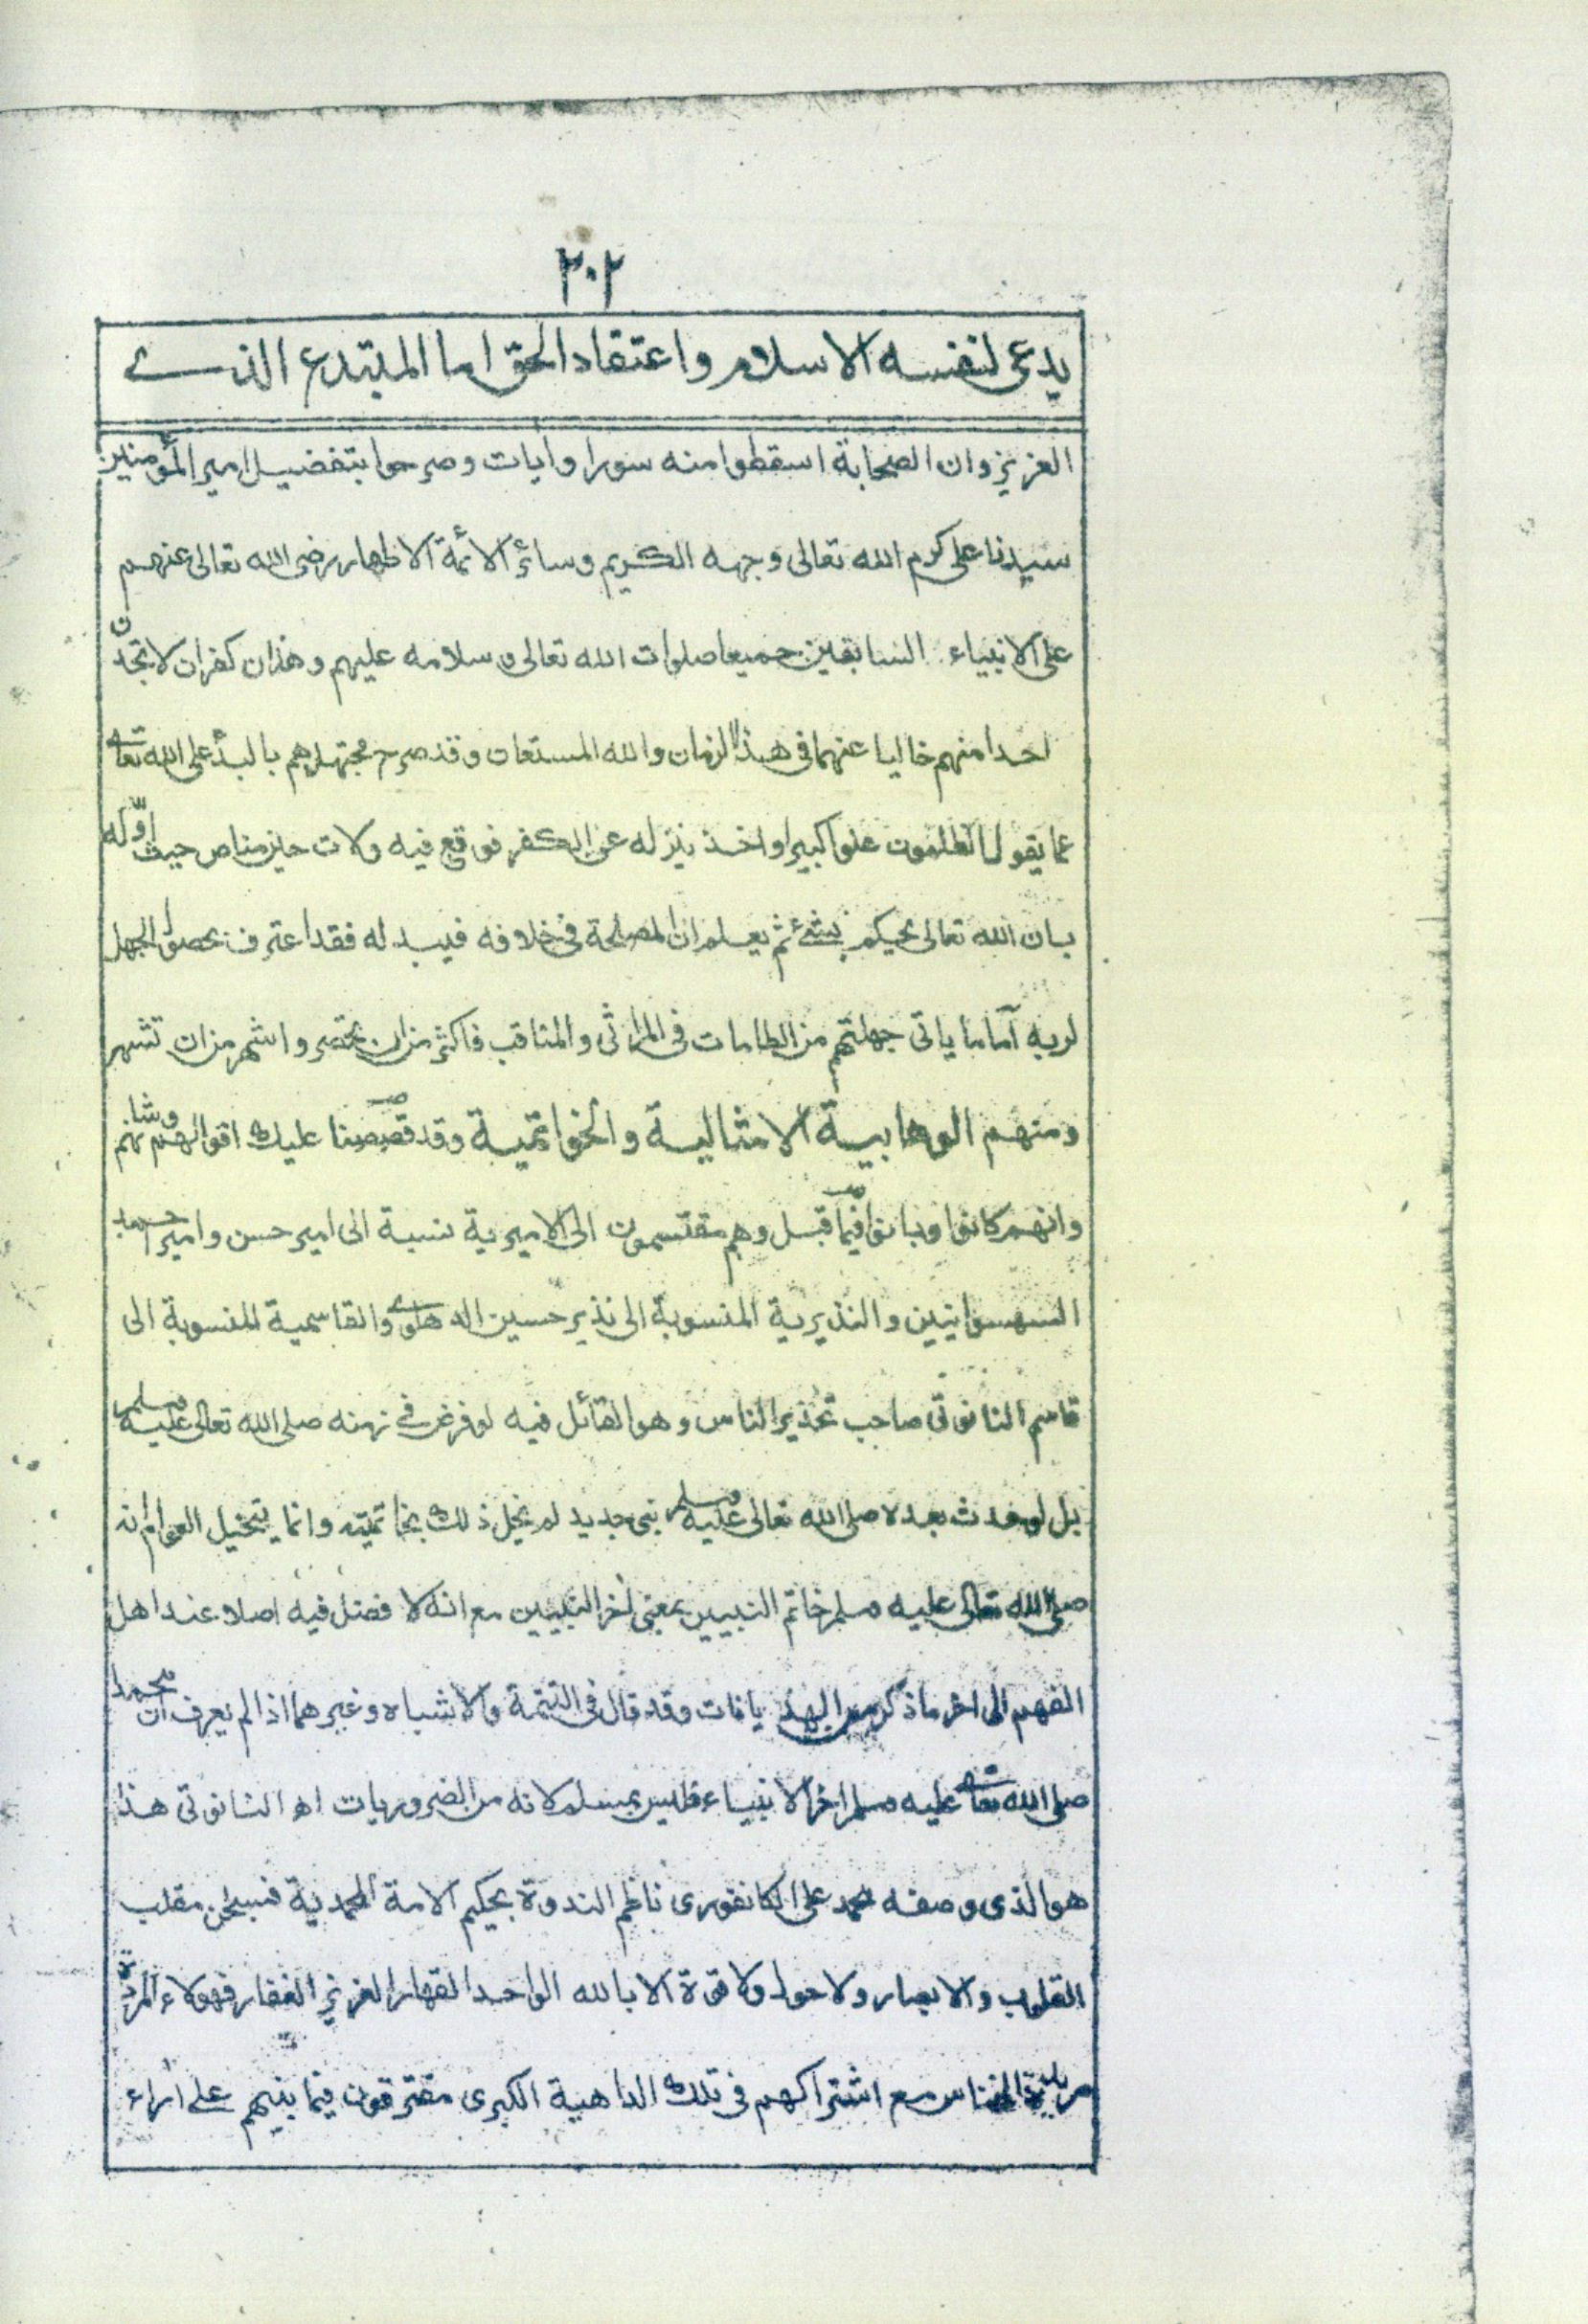 ٢٠٢
يدعى لنفسه الاسلام واعتقاد الحق اما المبتدع الذے
العزيز وان الصحابة اسقطوا منه سورا وايات وصرحوا بتفضيل امير المؤمنين
سيدنا على كرم الله تعالى وجهه الكريم وسائر الائمة الاطهار رضى الله تعالى عنهم
على الانبياء السابقين جميعا صلوات الله تعالى وسلامه عليهم وهذان كفران لا تجدن
احدا منهم خاليا عنهما فى هذا الزمان والله المستعان وقد صرح مجتهدهم بالبدأ على الله تعالى
عما يقول الظلمون علوا كبيرا واخذ ينزله عن الكفر فوقع فيه ولات حين مناص حيث اوّله
بان الله تعالى يحيكم بشئ ثم يعلم ان المصلحة فى خلافه فيبدله فقد اعترف بحصول الجهل
لربه آما ما ياتى جهلتهم من الطامات فى المراثى والمناقب فاكثر من ان يحتصر واشهر من ان تشهر
ومنهم الوهابية الامثالية والخواتمية وقد قصصنا عليك اقوالهم وشانهم
وانهم كانوا وبانوا فيما قبل وهم مقتسمون الى الاميرية نسبة الى امير حسن وامير احمد
السهسوانيين والنذيرية المنسوبة الى نذير حسين الدهلوے والقاسمية المنسوبة الى
قاسم النانوتى صاحب تحذير الناس وهو القائل فيه لو فرض فى زمنه صلى الله تعالى عليه وسلم
بل لو حدث بعده صلى الله تعالى عليه وسلم نبى جديد لم يخل ذلك بخاتميته وانما يتخيل العوام انه
صلى الله تعالى عليه وسلم خاتم النبيين بمعنى أخر النبيين مع انه لا فضل فيه اصلا عند اهل
الفهم الى اخر ما ذكر من الهذيانات وقد قال فى التتمة والاشباه وغيرهما اذا لم يعرف ان محمدا
صلى الله تعالى عليه وسلم اخر الانبياء فليس بمسلم لانه من الضروريات اھ النانوتى هذا
هو الذى وصفه محمد على الكانفورى ناظم الندوة بحيكم الامة المحمدية فسبحن مقلب
القلوب والابصار ولا حول ولا قوة الا بالله الواحد القهار العزيز الغفار فهولاء المردة
مريدة الخناس مع اشتراكهم فى تلك الداهية الكبرى مفترقون فيما بينهم على اراء